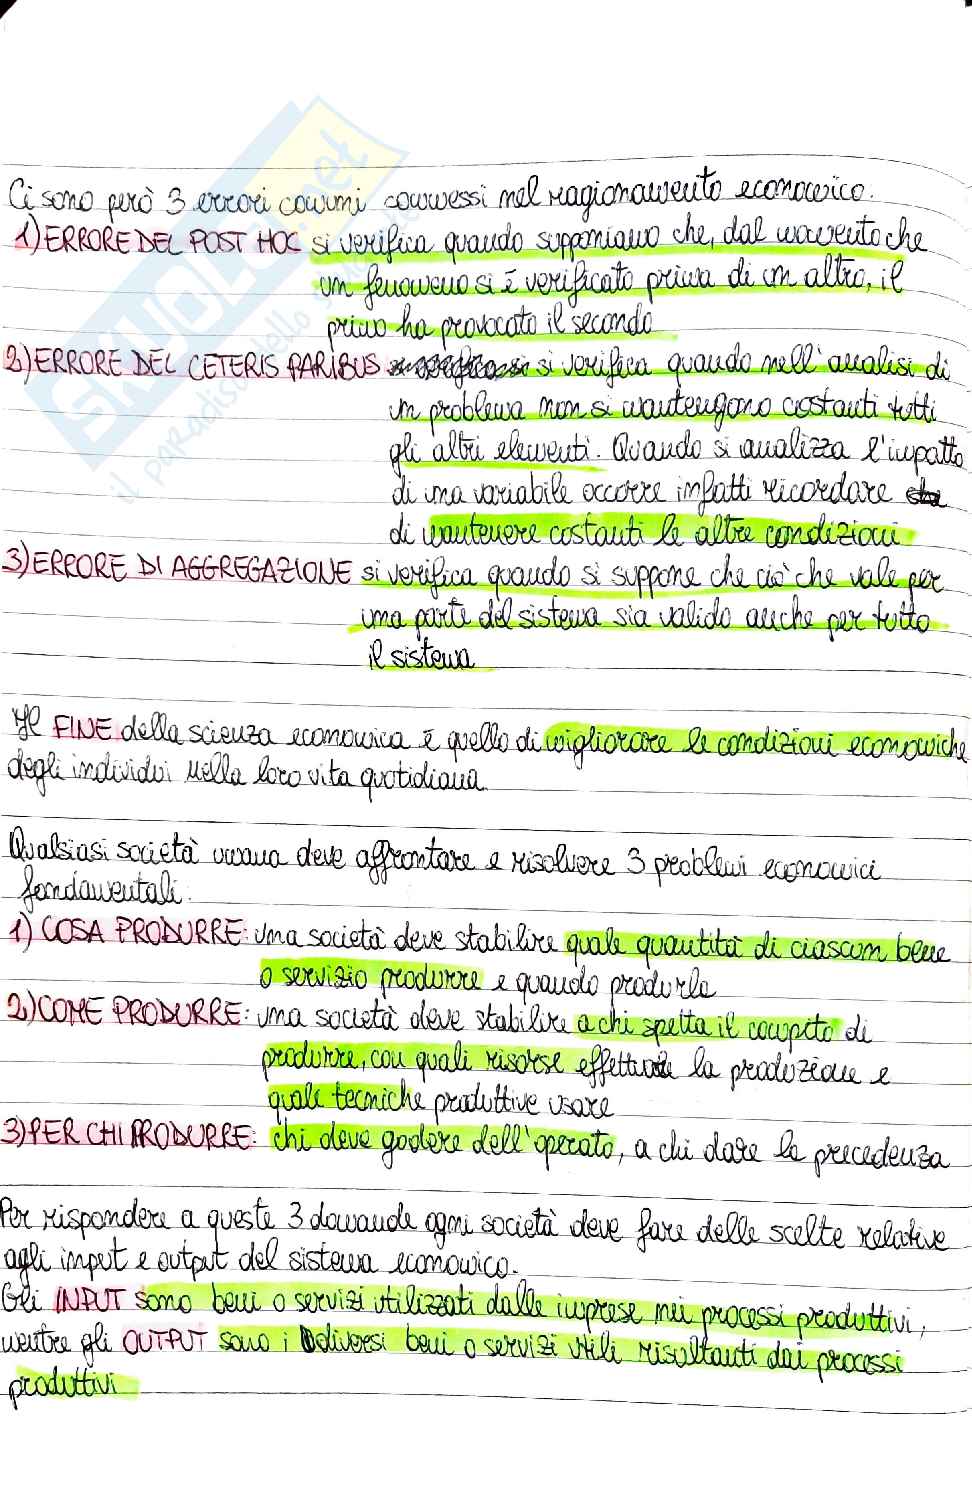 SKUOLA.net
il paradiso dello studente
Ci sono però 3 errori comuni commessi nel ragionamento economico.
1) ERRORE DEL POST HOC si verifica quando supponiamo che, dal momento che
un fenomeno si è verificato prima di un altro, il
primo ha provocato il secondo
2) ERRORE DEL CETERIS PARIBUS si verifica quando nell'analisi di
un problema non si mantengono costanti tutti
gli altri elementi. Quando si analizza l'impatto
di una variabile occorre infatti ricordare
di mantenere costanti le altre condizioni
3) ERRORE DI AGGREGAZIONE si verifica quando si suppone che ciò che vale per
una parte del sistema sia valido anche per tutto
il sistema
Il FINE della scienza economica è quello di migliorare le condizioni economiche
degli individui nella loro vita quotidiana.
Qualsiasi società umana deve affrontare e risolvere 3 problemi economici
fondamentali.
1) COSA PRODURRE: una società deve stabilire quale quantità di ciascun bene
o servizio produrre e quando produrla
2) COME PRODURRE: una società deve stabilire a chi spetta il compito di
produrre, con quali risorse effettuare la produzione e
quale tecniche produttive usare
3) PER CHI PRODURRE: chi deve godere dell'operato, a chi dare la precedenza
Per rispondere a queste 3 domande ogni società deve fare delle scelte relative
agli input e output del sistema economico.
Gli INPUT sono beni o servizi utilizzati dalle imprese nei processi produttivi,
mentre gli OUTPUT sono i diversi beni o servizi utili risultanti dai processi
produttivi